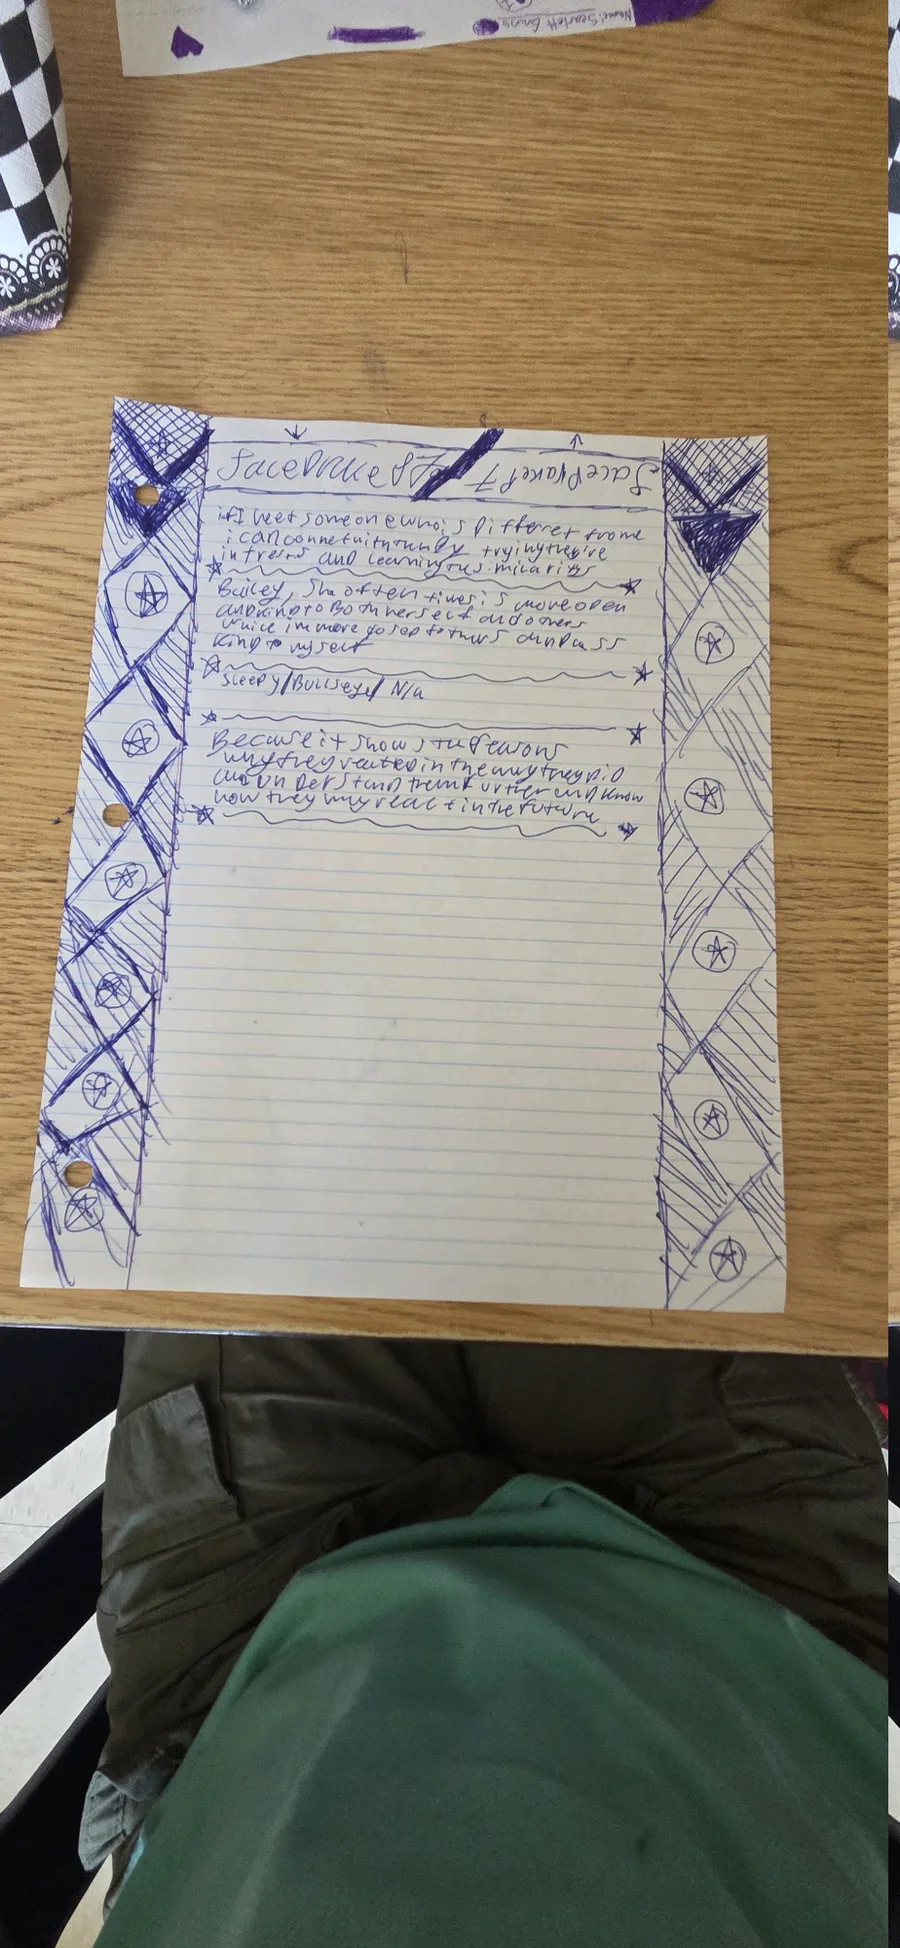 Name: Scarlett
JaceDrake P7 JaceDrakeP7
if I meet someone who is Differet frome
i can connetwith them by trying they're
intrests and learning the similaritys
Bailey, She often times is more open
and kind to Both herself and others
while im more closed to others and less
kind to myself
Sleepy/Bullseye/ N/a
Because it shows the reasons
why they reated in the way they did
and understand them further and know
how they may react in the future